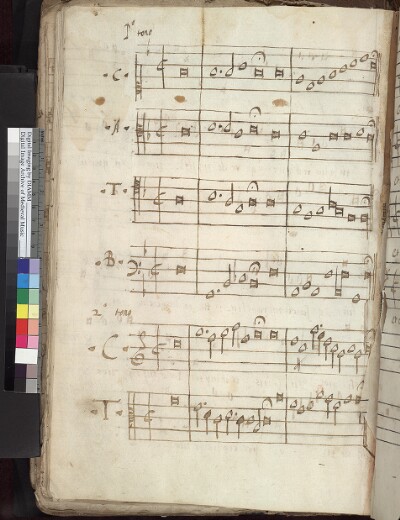 1º tono
C
A
T
B
2º tono
C
T
Digital Imaging by DIAMM
Digital Image Archive of Medieval Music